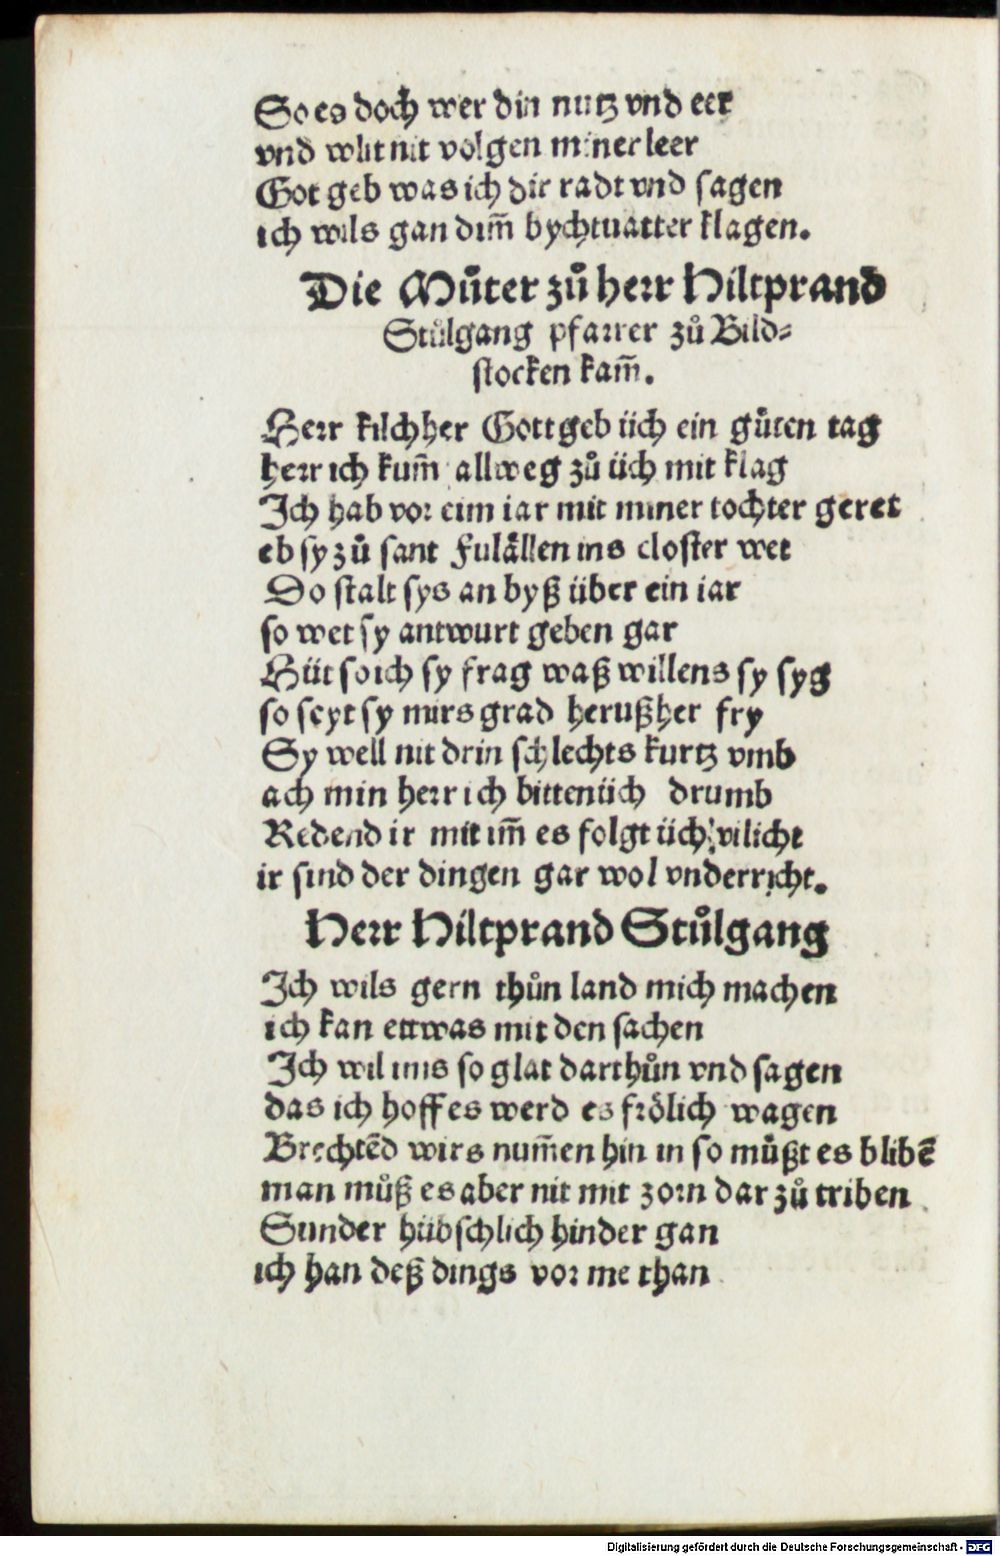 So es doch wer din nutz vnd eer
vnd wlit nit volgen miner leer
Got geb was ich dir radt vnd sagen
ich wils gan dim̄ bychtuatter klagen.
Die Můter zů herr Hiltprand
Stůlgang pfarrer zů Bild⸗
stocken kam̄.
Herr kilchher Gott geb üch ein gůten tag
herr ich kum̄ allweg zů üch mit klag
Ich hab vor eim iar mit miner tochter geret
eb sy zů sant Fulållen ins closter wet
Do stalt sys an byß über ein iar
so wet sy antwurt geben gar
Hüt so ich sy frag waß willens sy syg
so seyt sy mirs grad herußher fry
Sy well nit drin schlechts kurtz vmb
ach min herr ich bitten üch drumb
Redend ir mit im̄ es folgt üch vilicht
ir sind der dingen gar wol vnderricht.
Herr Hiltprand Stůlgang
Ich wils gern thůn land mich machen
ich kan ettwas mit den sachen
Ich wil ims so glat darthůn vnd sagen
das ich hoff es werd es frölich wagen
Brechtēd wirs num̄en hin in so můßt es blibē
man můß es aber nit mit zorn dar zů triben
Sunder hübschlich hinder gan
ich han deß dings vor me than
Digitalisierung gefördert durch die Deutsche Forschungsgemeinschaft - DFG